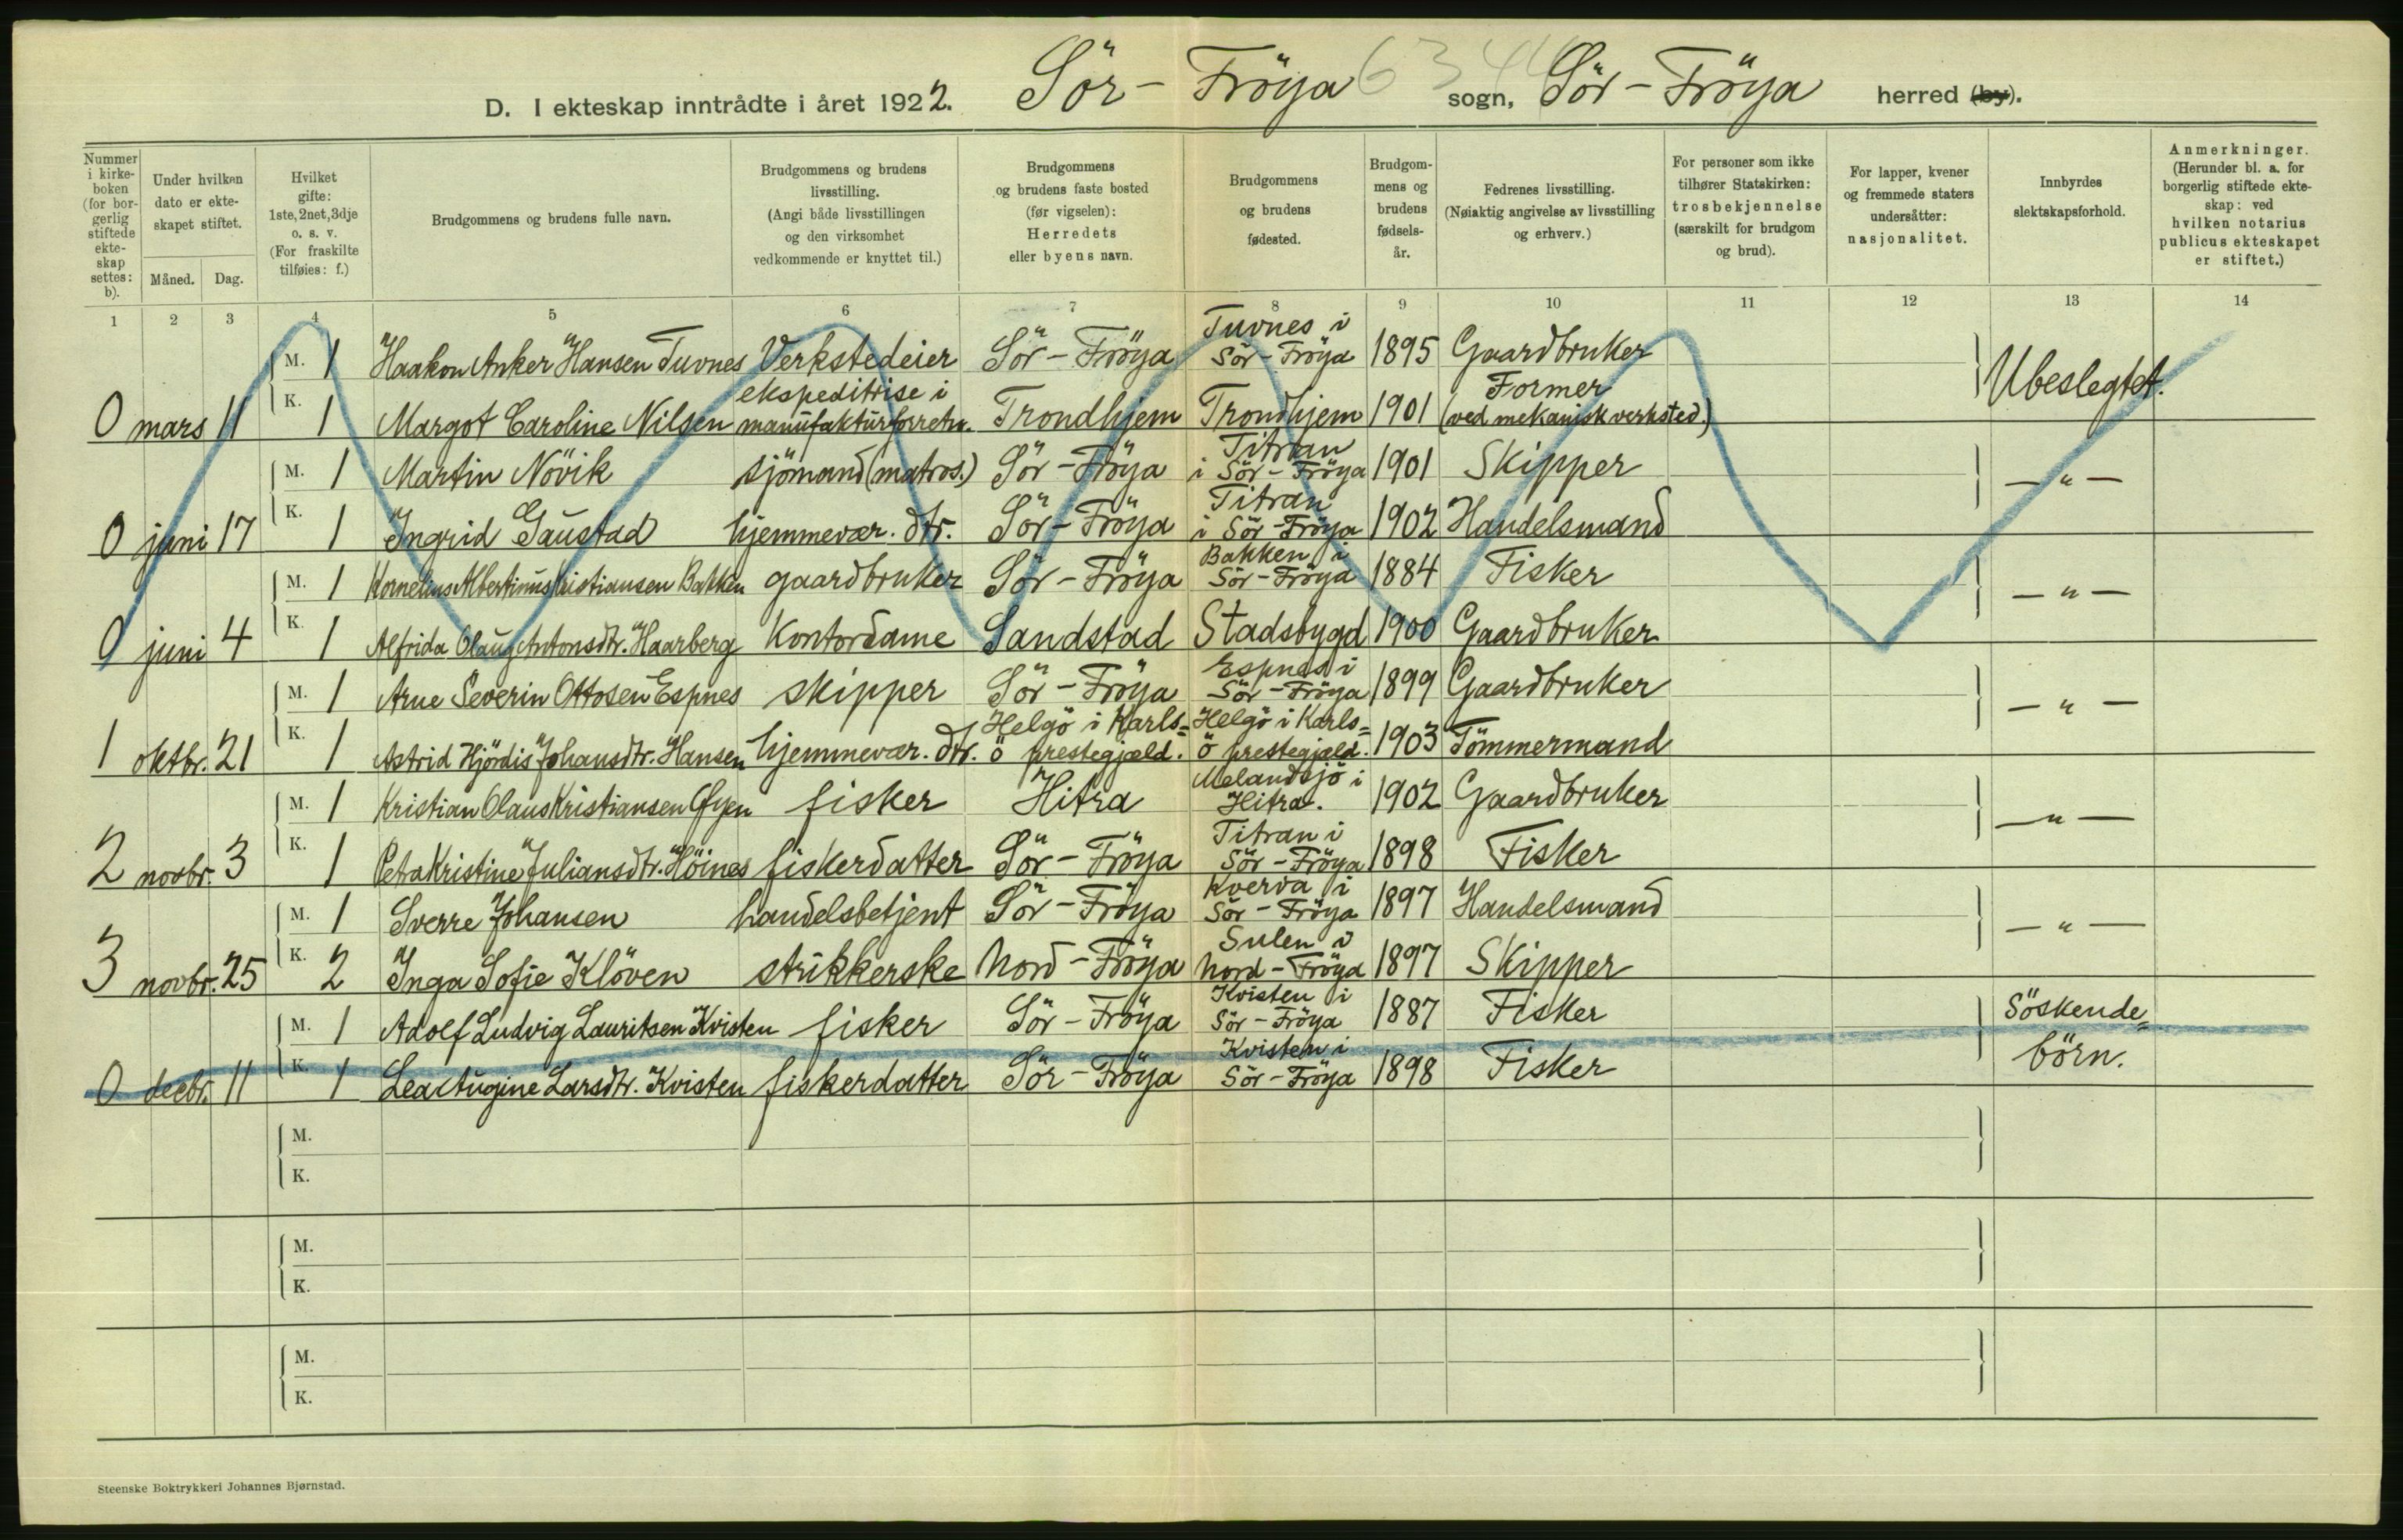 D. I ekteskap inntrådte i året 1922. Sör-Fröya 6344 sogn, Sör-Fröya herred (by).
Nummer i kirkeboken (for borgerlig stiftede ekteskap settes: b).
Under hvilken dato er ekteskapet stiftet.
Måned. Dag.
Hvilket gifte: 1ste, 2net, 3dje o. s. v. (For fraskilte tilføies: f.)
Brudgommens og brudens fulle navn.
Brudgommens og brudens livsstilling. (Angi både livsstillingen og den virksomhet vedkommende er knyttet til.)
Brudgommens og brudens faste bosted (før vigselen): Herredets eller byens navn.
Brudgommens og brudens fødested.
Brudgommens og brudens fødselsår.
Fedrenes livsstilling. (Nøiaktig angivelse av livsstilling og erhverv.)
For personer som ikke tilhører Statskirken: trosbekjennelse (særskilt for brudgom og brud).
For lapper, kvener og fremmede staters undersåtter: nasjonalitet.
Innbyrdes slektskapsforhold.
Anmerkninger. (Herunder bl. a. for borgerlig stiftede ekteskap: ved hvilken notarius publicus ekteskapet er stiftet.)
1 2 3 4 5 6 7 8 9 10 11 12 13 14
M. 1 Haakon Anker Hansen Tuvnes Verkstedeier Sör-Fröya Tuvnes i Sör-Fröya 1895 Gaardbruker Ubeslegtet.
0 mars 11 K. 1 Margot Caroline Nilsen ekspeditrise i manufakturforretn. Trondhjem Trondhjem 1901 Former (ved mekanisk verksted.)
M. 1 Martin Növik sjömand (matros.) Sör-Fröya Titran i Sör-Fröya 1901 Skipper — " —
0 juni 17 K. 1 Ingrid Gaustad hjemmevær. dtr. Sör-Fröya Titran i Sör-Fröya 1902 Handelsmand
M. 1 Kornelius Albertinus Kristiansen Bakken gaardbruker Sör-Fröya Bakken i Sör-Fröya 1884 Fisker — " —
0 juni 4 K. 1 Alfrida Olaug Antonsdtr. Haarberg Kontordame Sandstad Stadsbygd 1900 Gaardbruker
M. 1 Arne Severin Ottosen Espnes skipper Sör-Fröya Espnes i Sör-Fröya 1899 Gaardbruker — " —
1 oktbr. 21 K. 1 Astrid Hjördis Johansdtr. Hansen hjemmevær. dtr. Helgö i Karls=ö prestegjæld. Helgö i Karls=ö prestegjæld. 1903 Tömmermand
M. 1 Kristian Olaus Kristiansen Ofyen fisker Hitra Melandsjö i Hitra. 1902 Gaardbruker — " —
2 novbr. 3 K. 1 Petra Kristine Juliansdtr. Höines fiskerdatter Sör-Fröya Titran i Sör-Fröya 1898 Fisker
M. 1 Sverre Johansen handelsbetjent Sör-Fröya Kverva i Sör-Fröya 1897 Handelsmand — " —
3 novbr. 25 K. 2 Inga Sofie Klöven strikkerske Nord-Fröya Sulen i Nord-Fröya 1897 Skipper
M. 1 Adolf Ludvig Lauritsen Kvisten fisker Sör-Fröya Kvisten i Sör-Fröya 1887 Fisker Söskende=
0 decbr. 11 K. 1 Lea Augine Larsdtr. Kvisten fiskerdatter Sör-Fröya Kvisten i Sör-Fröya 1898 Fisker börn.
M.
K.
M.
K.
M.
K.
Steenske Boktrykkeri Johannes Bjørnstad.